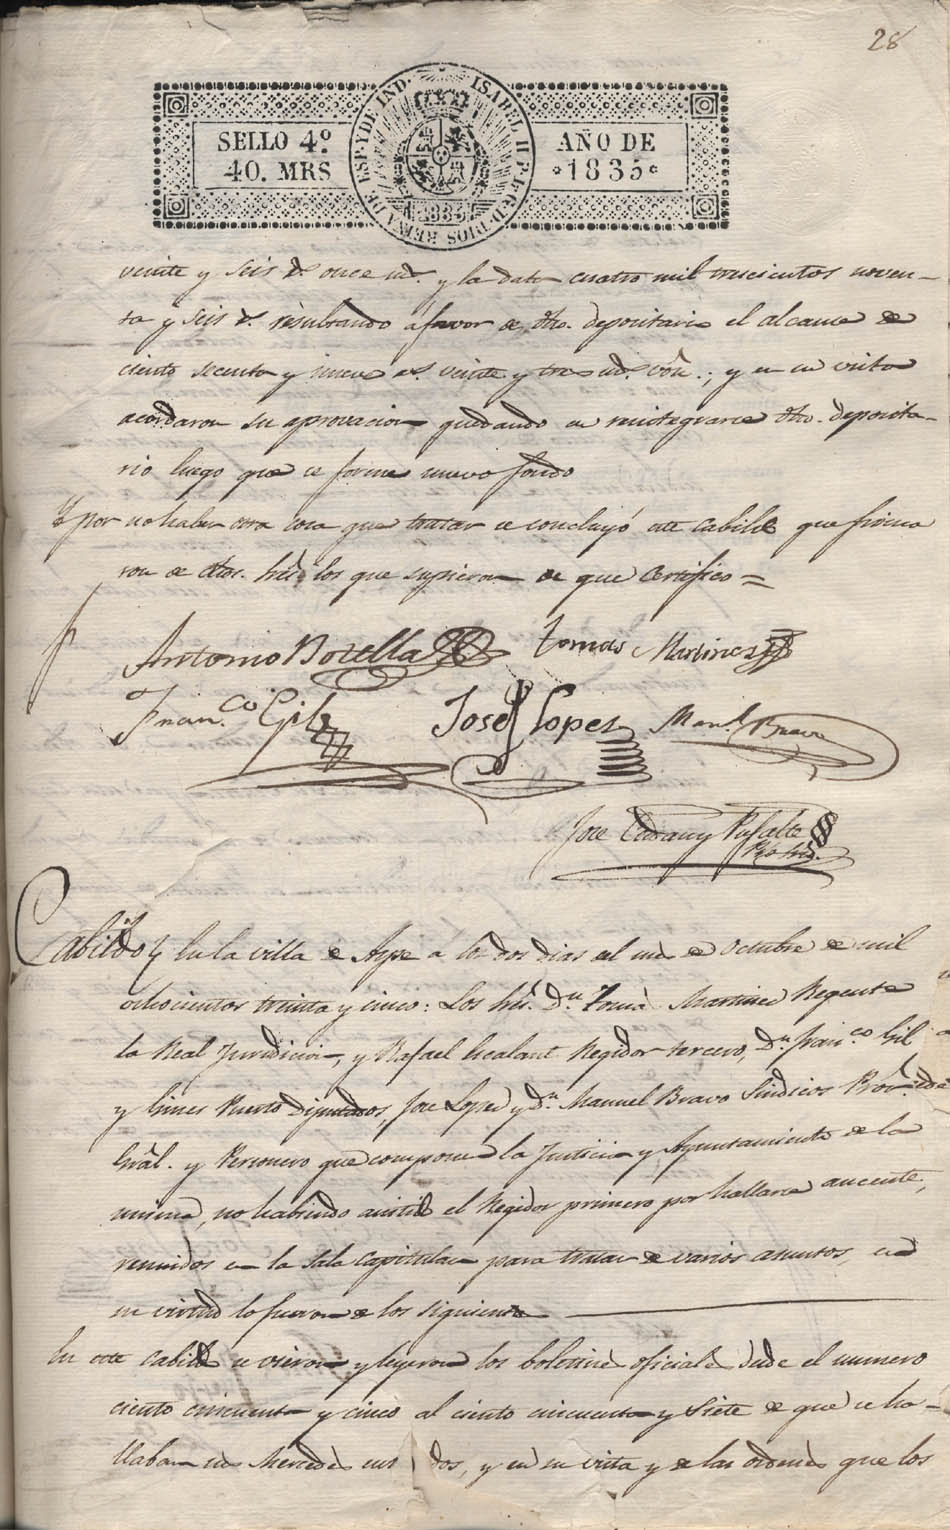 28
SELLO 4º
40. MRS
AÑO DE
1835
ISABEL II P. L. G. D. DIOS REINA DE ESP. Y DE IND.
1835
veinte y seis r.s once md. y la data cuatro mil trescientos noven-
ta y seis r.s resultando á favor de dho. depositario el alcance de
ciento secenta y nueve r.s veinte y tres md.s von.; y en su vista
acordaron su aprovacion quedando en reintegrarse dho. deposita-
rio luego que se forme nuevo fondo
Y por no haber otra cosa que tratar se concluyó este Cabildo que firma
ron de dhos. Sres. los que supieron de que Certifico=
Antonio Botella
Tomas Martinez
Fran.co Gil
Josef Lopez
Man.l Bravo
Jose
Cabildo} En la villa de Aspe a los dos dias del mes de Octubre de mil
ochocientos treinta y cinco: Los Sres. D.n Tomas Martinez Regente
la Real Juridicion, y Rafael Regidor tercero, D.n Fran.co Gil
y Gines Puerto Diputados, Jose Lopez y D.n Manuel Bravo Sindicos Pror.
Gral. y Personero que componen la Justicia y Ayuntamiento de la
misma, no habiendo asistido el Regidor primero por hallarse aucente,
reunidos en la Sala Capitular para tratar de varios asuntos, en
su virtud lo fueron de los siguientes
En este Cabildo se vieron y leyeron los boletines oficiales desde el numero
ciento cincuenta y cinco al ciento cincuenta y siete de que se ha-
llaban sus Mercedes dos, y en su vista y de las ordenes que los